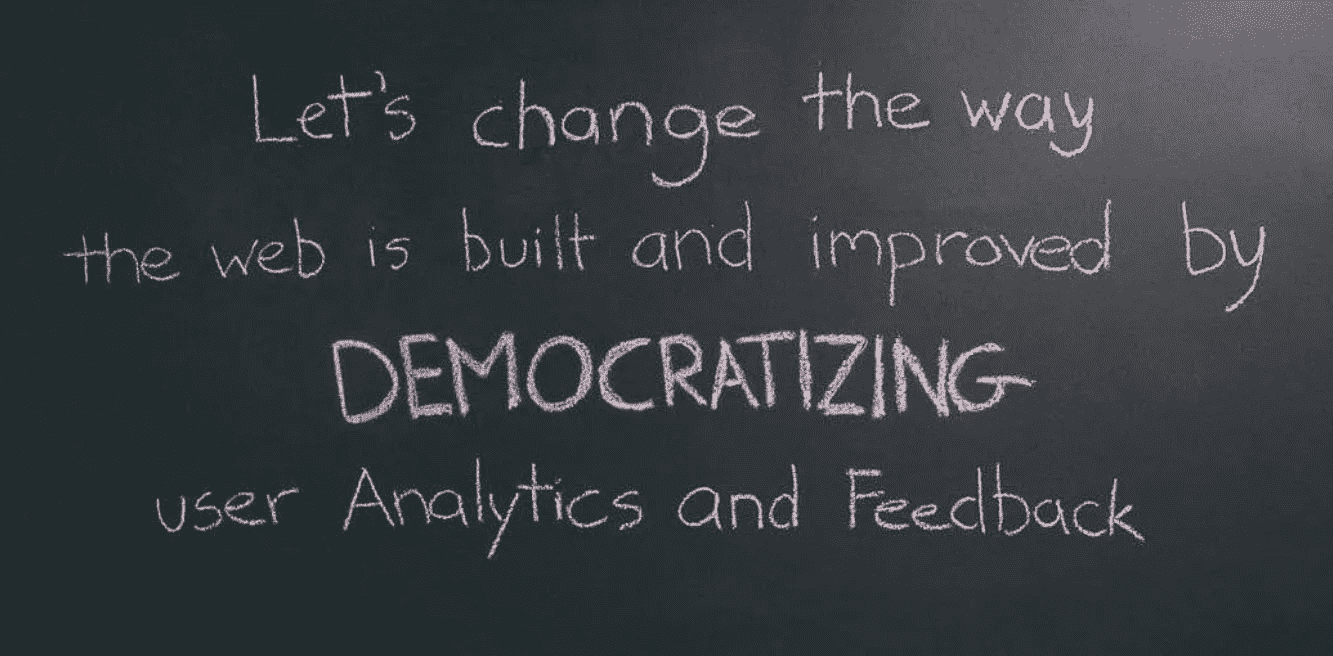 Let's change the way
the web is built and improved by
DEMOCRATIZING
user Analytics and Feedback